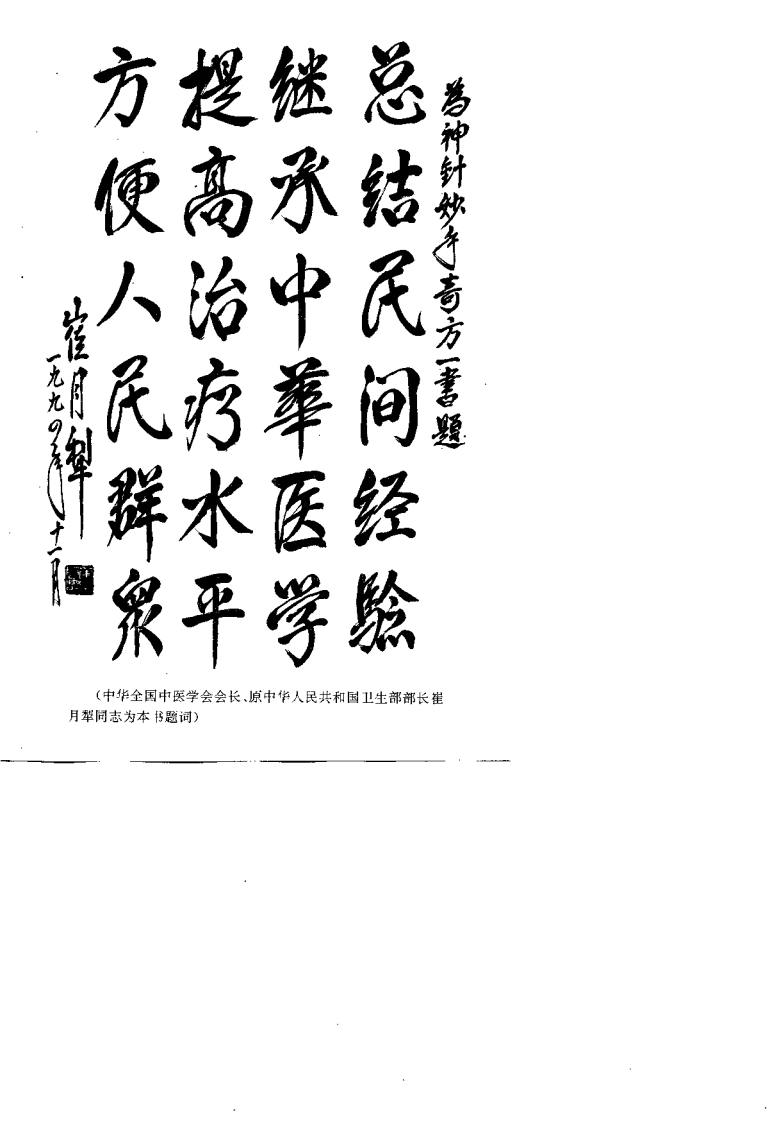 為神針妙手奇方一書題
总结民间经验
继承中華医学
提高治疗水平
方便人民群衆
崔月犁
一九九四年十一月
（中华全国中医学会会长、原中华人民共和国卫生部部长崔
月犁同志为本书题词）